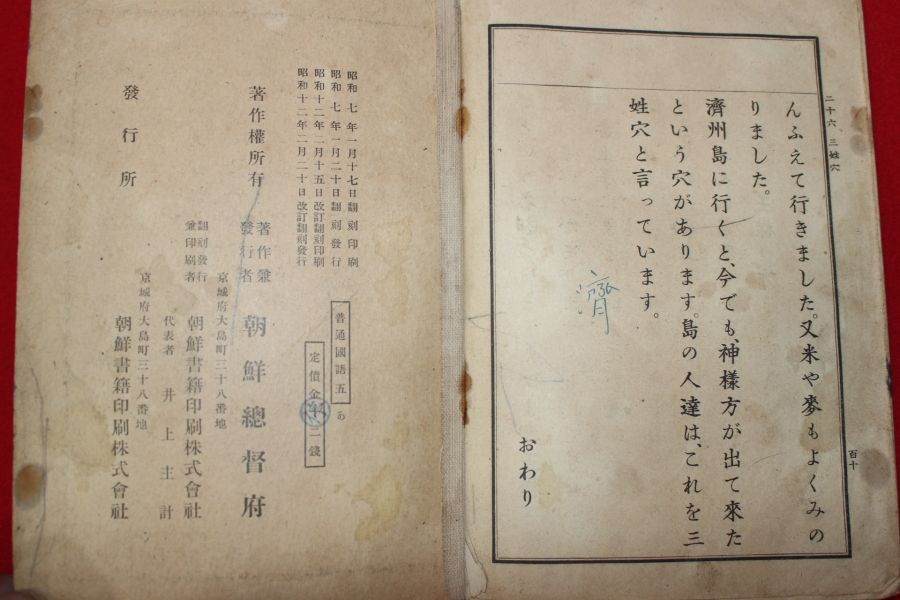 二十六 三姓穴
百十
んふえて行きました。又米や麥もよくみの
りました。
濟州島に行くと、今でも、神樣方が出て來た
という穴があります。島の人達は、これを三
姓穴と言っています。
濟
おわり
昭和七年一月十七日翻刻印刷
昭和七年一月二十日翻刻發行
昭和十二年二月十五日改訂翻刻印刷
昭和十二年二月二十日改訂翻刻發行
普通國語五
あ
定價金 二錢
著作權所有
著作兼
發行者
朝鮮總督府
京城府大島町三十八番地
翻刻發行
兼印刷者
朝鮮書籍印刷株式會社
代表者 井上主計
京城府大島町三十八番地
發行所
朝鮮書籍印刷株式會社